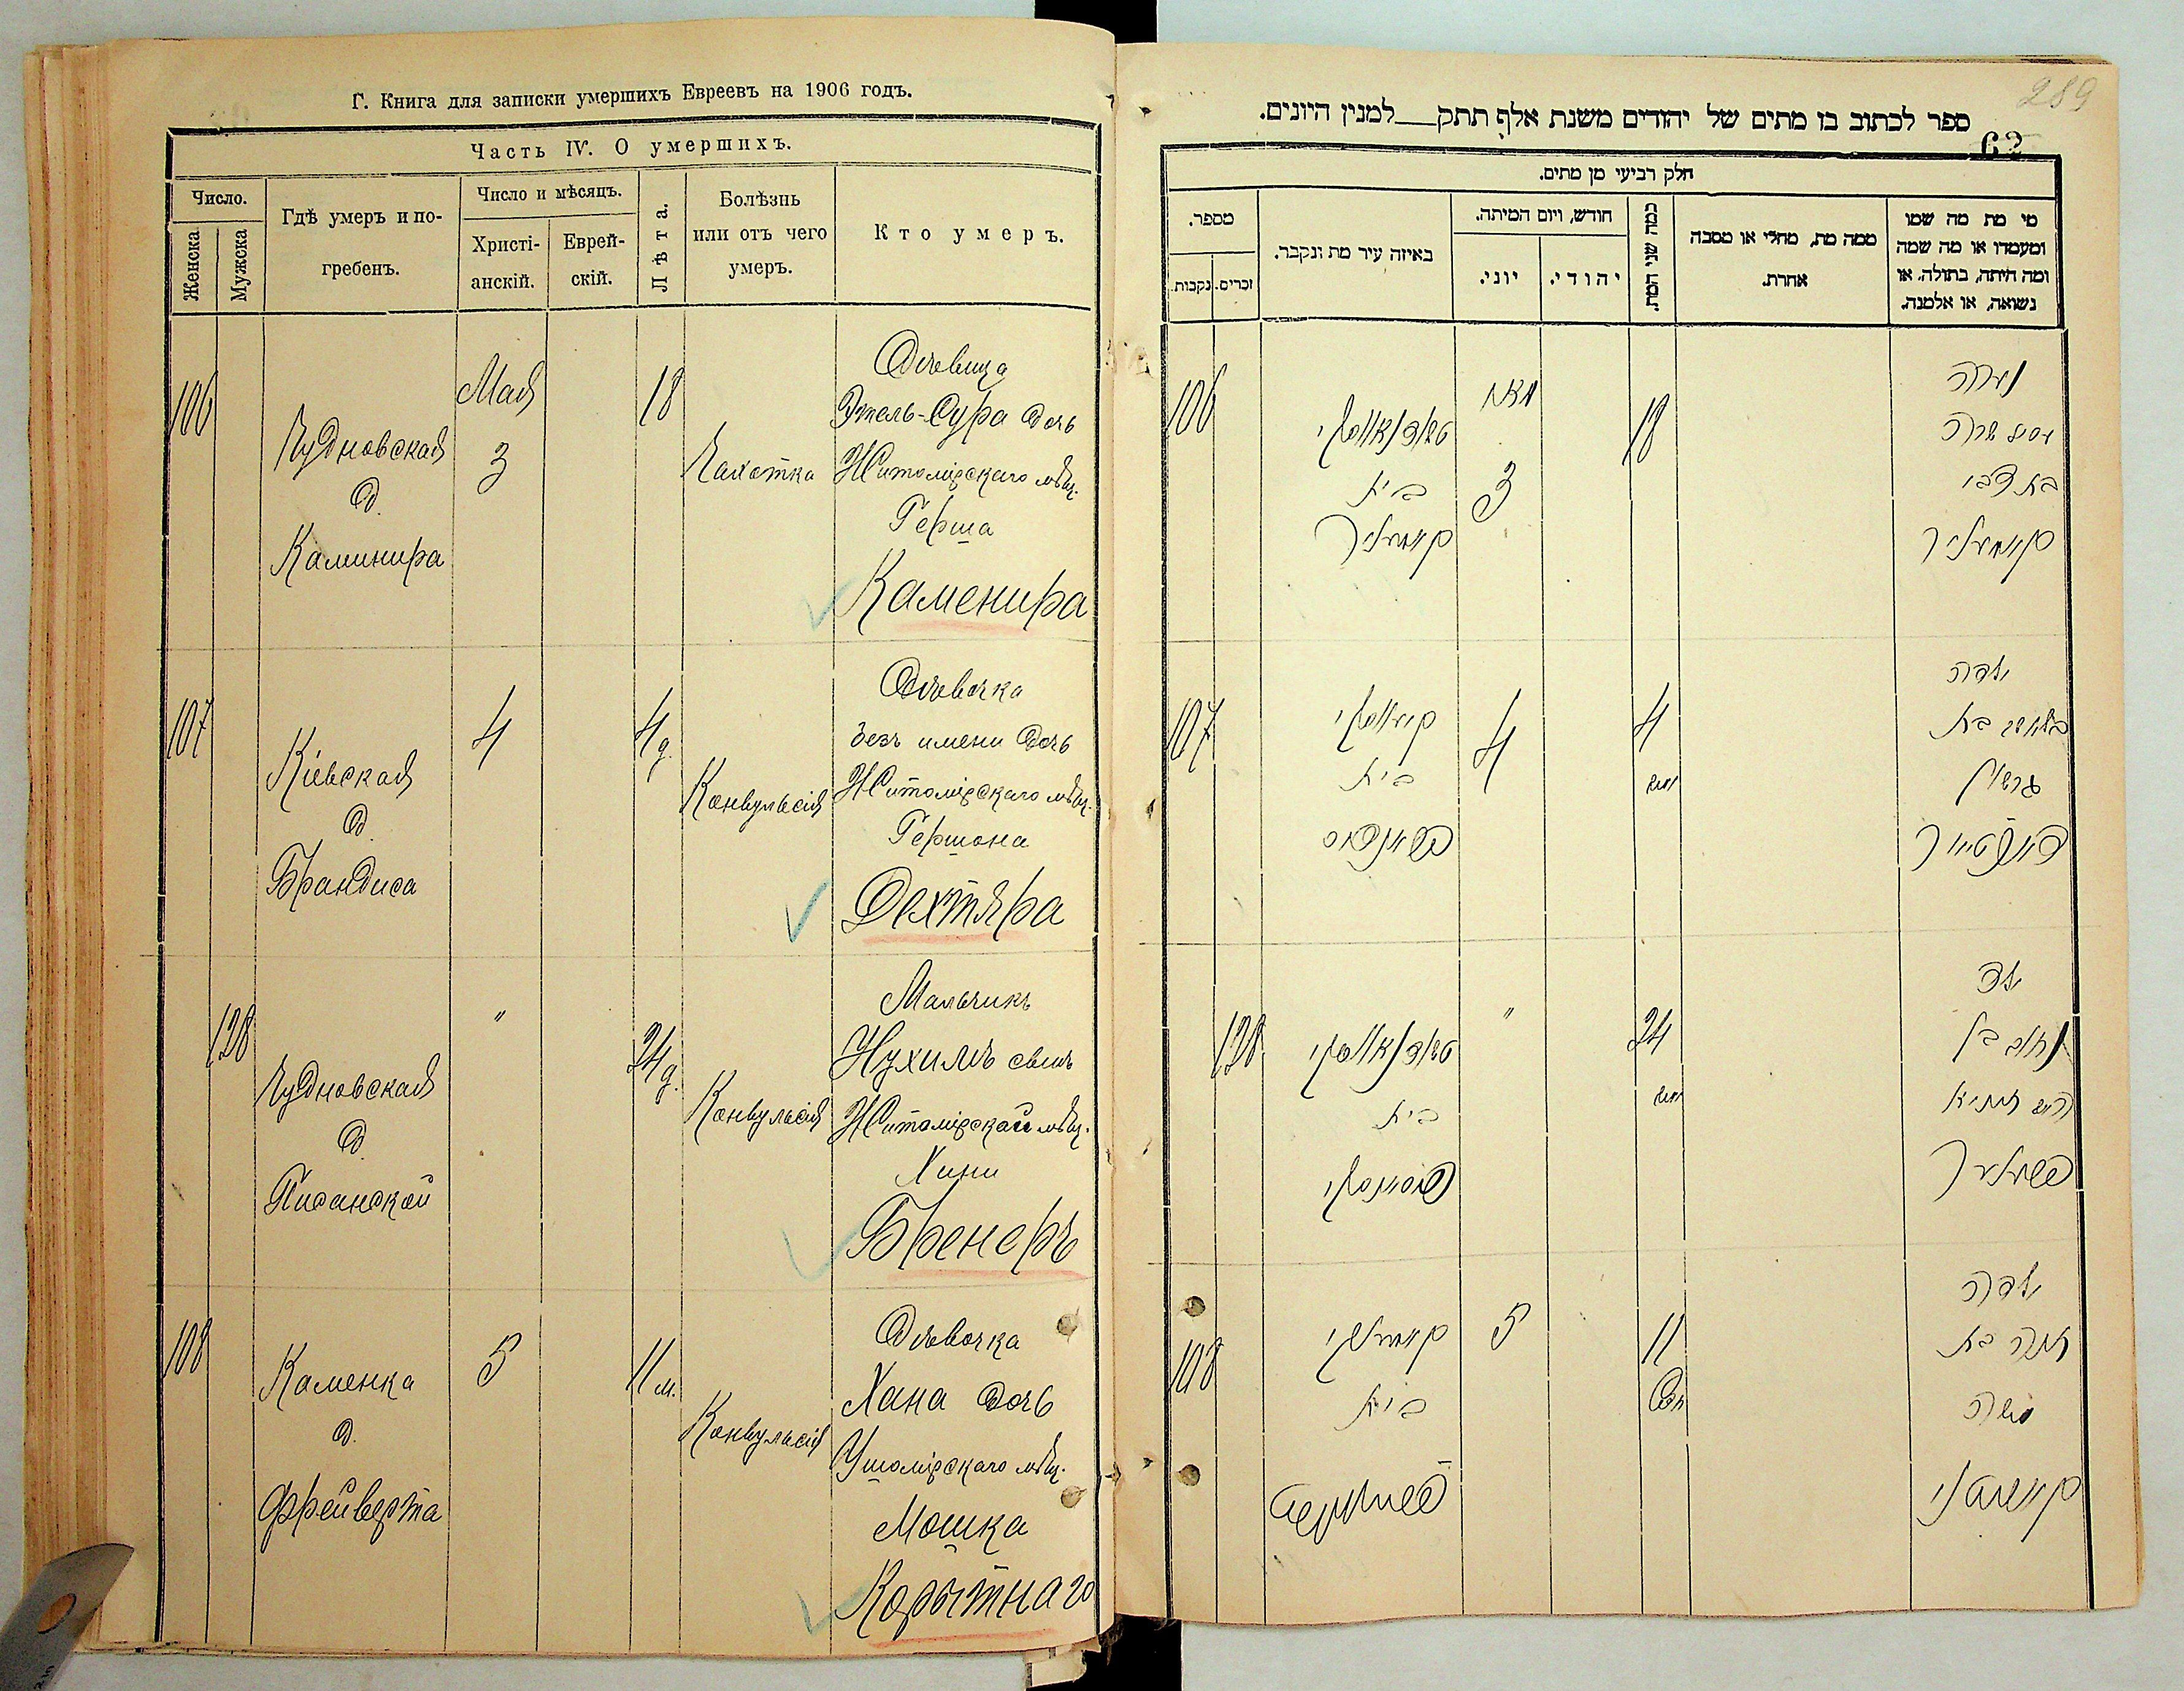 Г. Книга для записки умершихъ Евреевъ на 1906 годъ.
Часть IV. О умершихъ.
Число.
Женска
Мужска
Гдѣ умеръ и по-
гребенъ.
Число и мѣсяцъ.
Христі-
анскій.
Еврей-
скій.
Лѣта.
Болѣзнь
или отъ чего
умеръ.
Кто умеръ.
106
Чудновская
д.
Каминира
Мая
3
18
Чахотка
Дѣвица
Этель-Сура дочь
Житомірскаго мѣщ.
Герша
Каменира
107
Кіевская
д.
Брандиса
4
4 д.
Конвульсія
Дѣвочка
безъ имени дочь
Житомірскаго мѣщ.
Гершона
Дехтяра
128
Чудновская
д.
Писанской
"
24 д.
Конвульсія
Мальчикъ
Нухимъ сынъ
Житомірской мѣщ.
Хини
Бренеръ
108
Каменка
д.
Фрейверта
5
11 м.
Конвульсія
Дѣвочка
Хана дочь
Ушомірскаго мѣщ.
Мошка
Корытнаго
289
ספר לכתוב בו מתים של יהודים משנת אלף תתק למנין היונים.
62
חלק רביעי מן מתים.
מספר.
זכרים.
נקבות.
באיזה עיר מת ונקבר.
חודש, ויום המיתה.
יוני.
יהודי.
כמה שני המת.
ממה מת, מחלי או מסבה
אחרת.
מי מת מה שמו
ומעמדו או מה שמה
ומה היתה, בתולה, או
נשואה, או אלמנה.
106
בית
קאמיניר
מאי
3
18
נערה
שרה
בת צבי
קאמיניר
107
בית
4
4
ילדה
בת
גרשון
128
בית
"
24
ילד
נחום בן
ברענער
108
בית
5
11
ילדה
חנה בת
משה